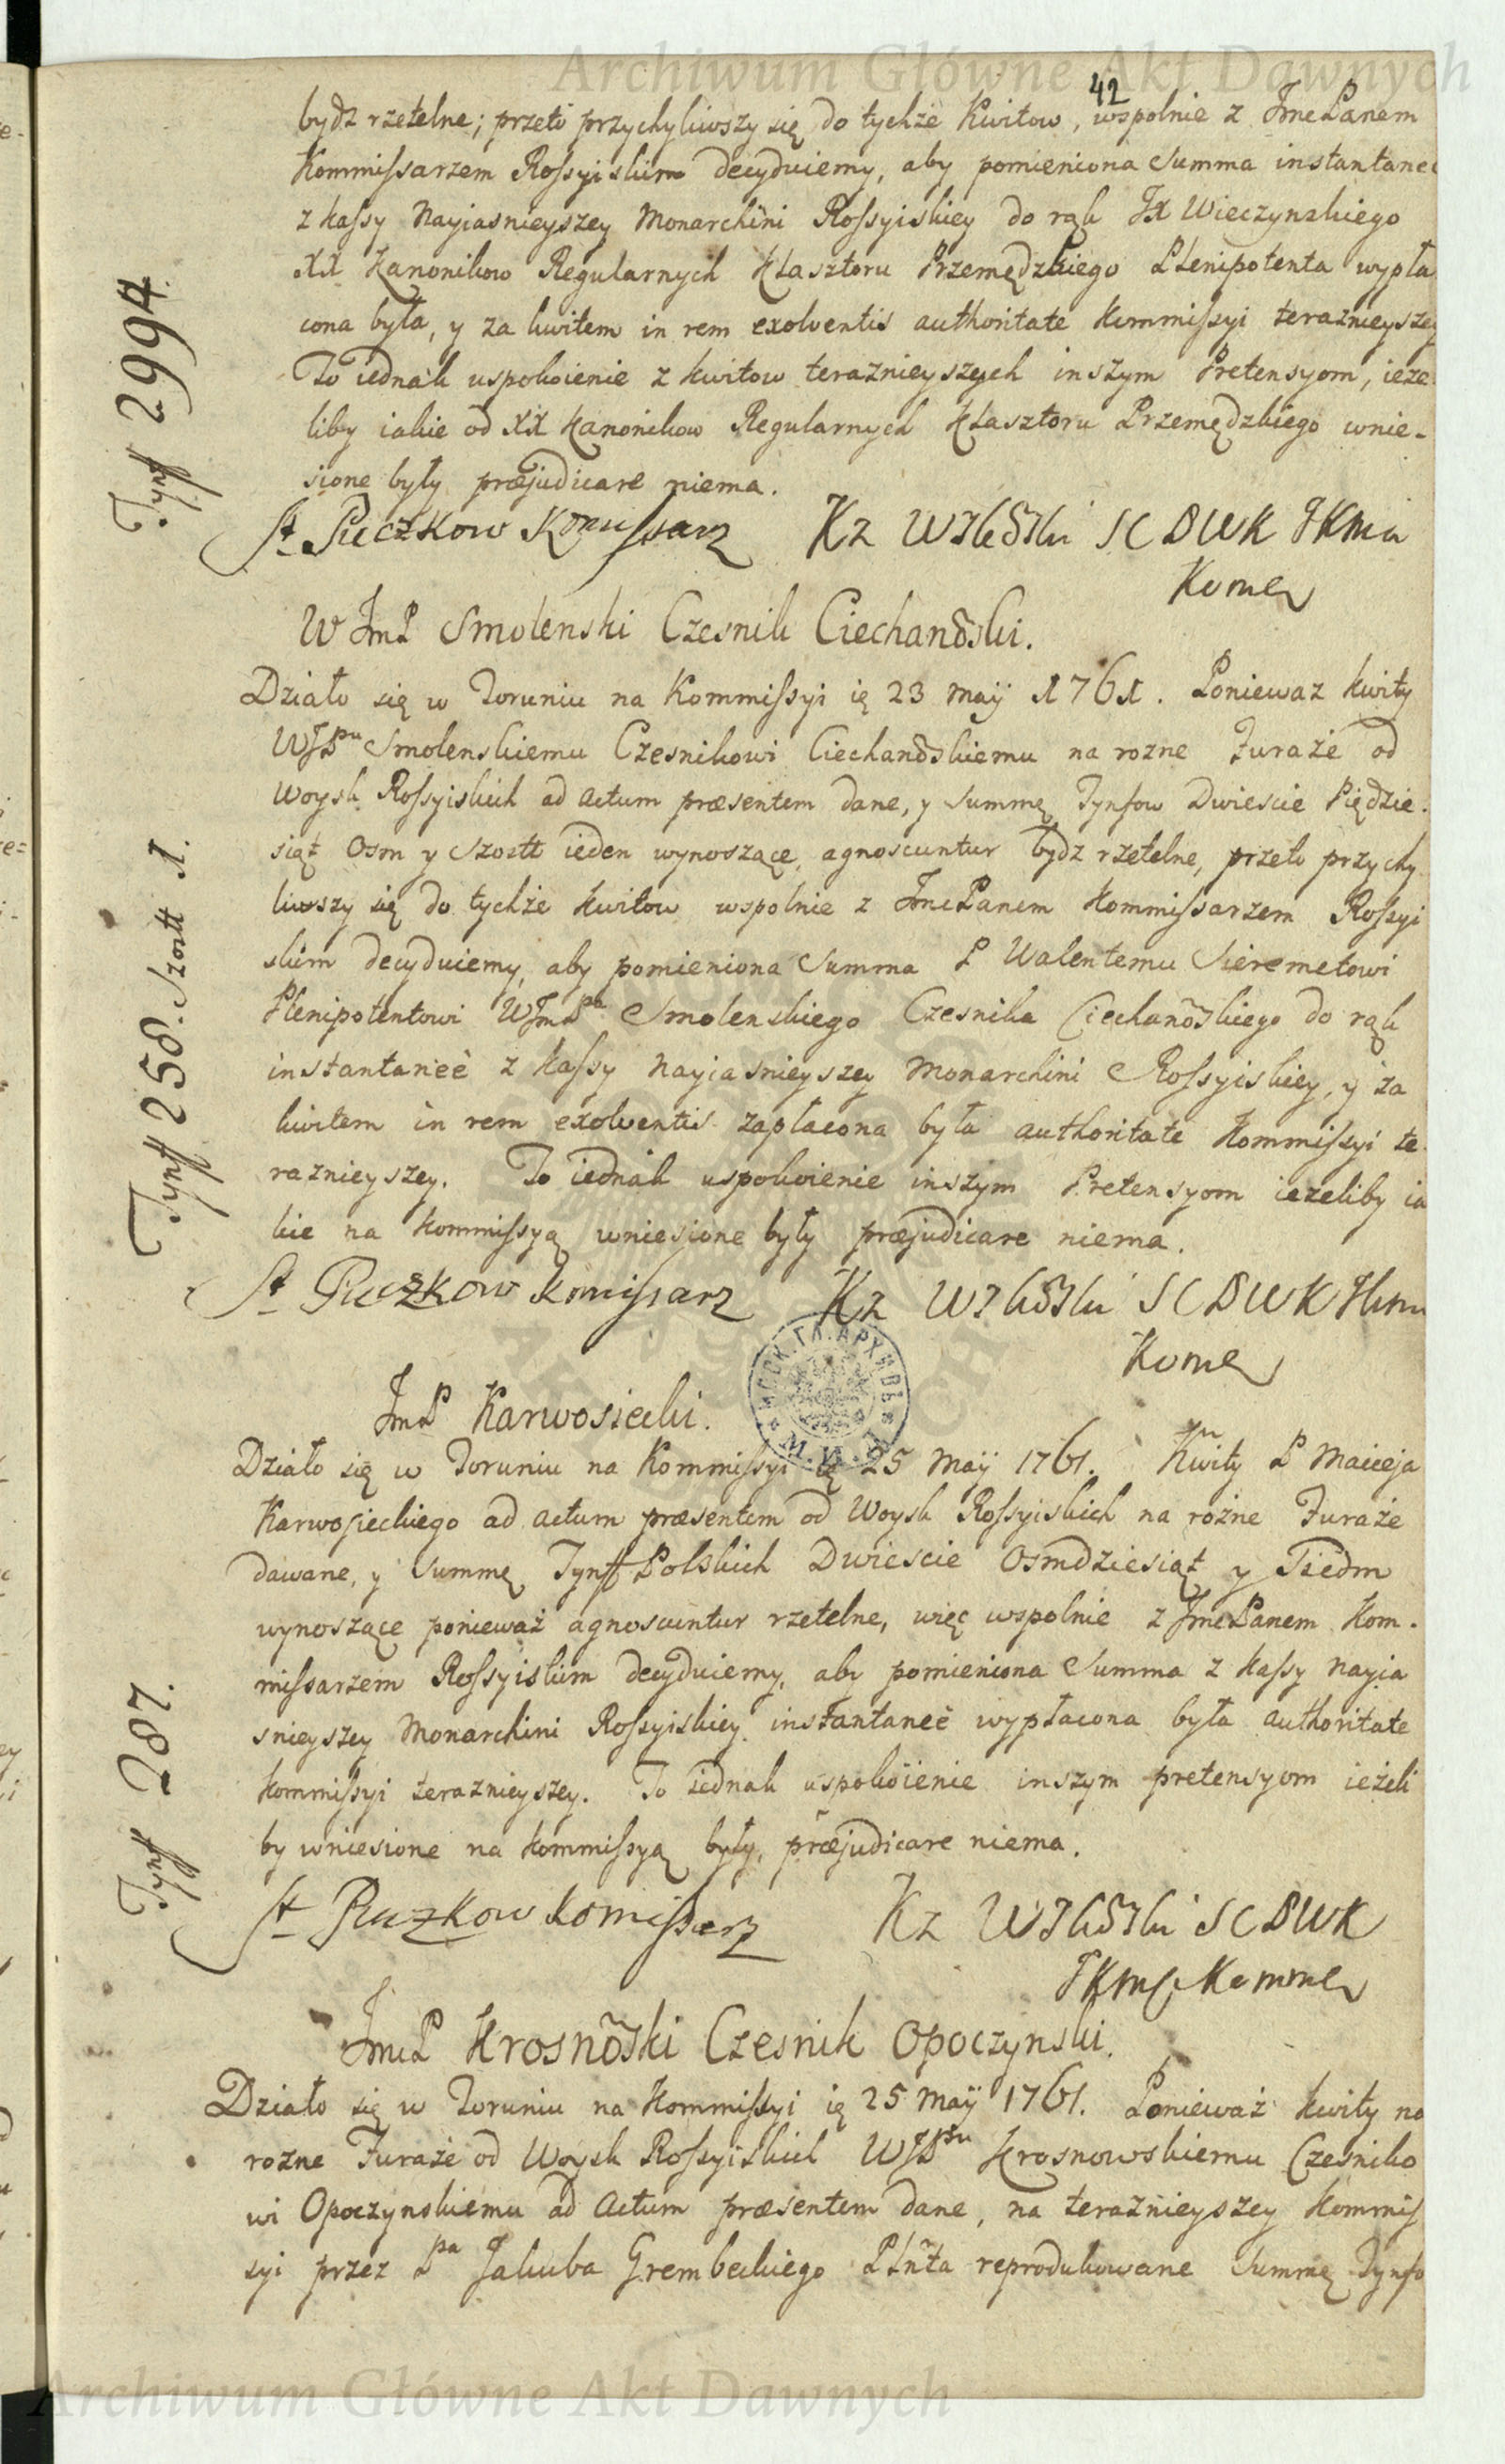 Archiwum Główne Akt Dawnych
42
bydz rzetelne; przeto przychyliwszy się do tychże Kwitow, wspolnie z JmcPanem
Kommissarzem Rossyiskim decyduiemy, aby pomieniona Summa instantanee
z kassy Nayiasnieyszey Monarchini Rossyiskiey do rąk JX Wieczynskiego
XX Kanonikow Regularnych Klasztoru Przemędzkiego Plenipotenta wypła
cona była, y za kwitem in rem exolventis authoritate Kommissyi teraznieyszey
To iednak uspokoienie z kwitow teraznieyszych inszym Pretensyom, ieze
liby iakie od XX Kanonikow Regularnych Klasztoru Przemędzkiego wnie-
sione były præjudicare niema.
Tynff 2994.
St Puczkow Komissarz Kz SCDWK JKmci
Kome
W JmP Smolenski Czesnik Ciechanoski.
Działo się w Toruniu na Kommissyi ię 23 Maÿ 1761. Poniewaz kwity
WJPnu Smolenskiemu Czesnikowi Ciechanoskiemu na rozne Furaże od
Woysk Rossyiskich ad Actum præsentem dane, y Summę Tynfow Dwiescie Piędzie-
siąt Osm y Szostt ieden wynoszące, agnoscuntur bydz rzetelne, przeto przychy
liwszy się do tychże kwitow wspolnie z JmcPanem Kommissarzem Rossyi
skim decyduiemy, aby pomieniona Summa P Walentemu Sieremetowi
Plenipotentowi WJmPa Smolenskiego Czesnika Ciechanoskiego do rąk
instantaneè z kassy Nayiasnieyszey Monarchini Rossyiskiey, y za
kwitem in rem exolventis zapłacona była authoritate Kommissyi te-
raznieyszey. To iednak uspokoienie inszym Pretensyom iezeliby ia
kie na Kommissyą wniesione były præjudicare niema.
Tynff 258. Szostt 1.
St Puczkow Komissarz Kz SCDWK JKm
Kome
JmP Karwosiecki.
МОСК. ГЛ. АРХИВЪ М.И.Д.
Działo się w Toruniu na Kommissyi ię 25 Maÿ 1761. Kwity P Macieja
Karwosieckiego ad actum præsentem od Woysk Rossyiskich na rożne Furaże
dawane, y Summę Tynff Polskich Dwiescie Osmdziesiąt y Siedm
wynoszące ponieważ agnoscuntur rzetelne, więc wspolnie z JmcPanem Kom-
missarzem Rossyiskim decyduiemy, aby pomieniona Summa z kassy Nayia
snieyszey Monarchini Rossyiskiey instantaneè wypłacona była authoritate
Kommissyi teraznieyszey. To iednak uspokoienie inszym pretensyom ieżeli
by wniesione na Kommissyą były, præjudicare niema.
Tynff 287.
St Puczkow Komissarz Kz SCDWK
JKmci Komme
JmcP Krosnoski Czesnik Opoczynski.
Działo się w Toruniu na Kommissyi ię 25 Maÿ 1761. Ponieważ kwity na
rozne Furaże od Woysk Rossyiskich WJPnu Krosnowskiemu Czesniko
wi Opoczynskiemu ad Actum præsentem dane, na teraznieyszey Kommis
syi przez Pna Jakuba Grembeckiego Plnta reprodukowane Summę Tynfo
Archiwum Główne Akt Dawnych